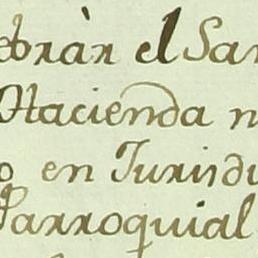 ebràr el San
Hacienda n
o en Jurisdi
Parroquial